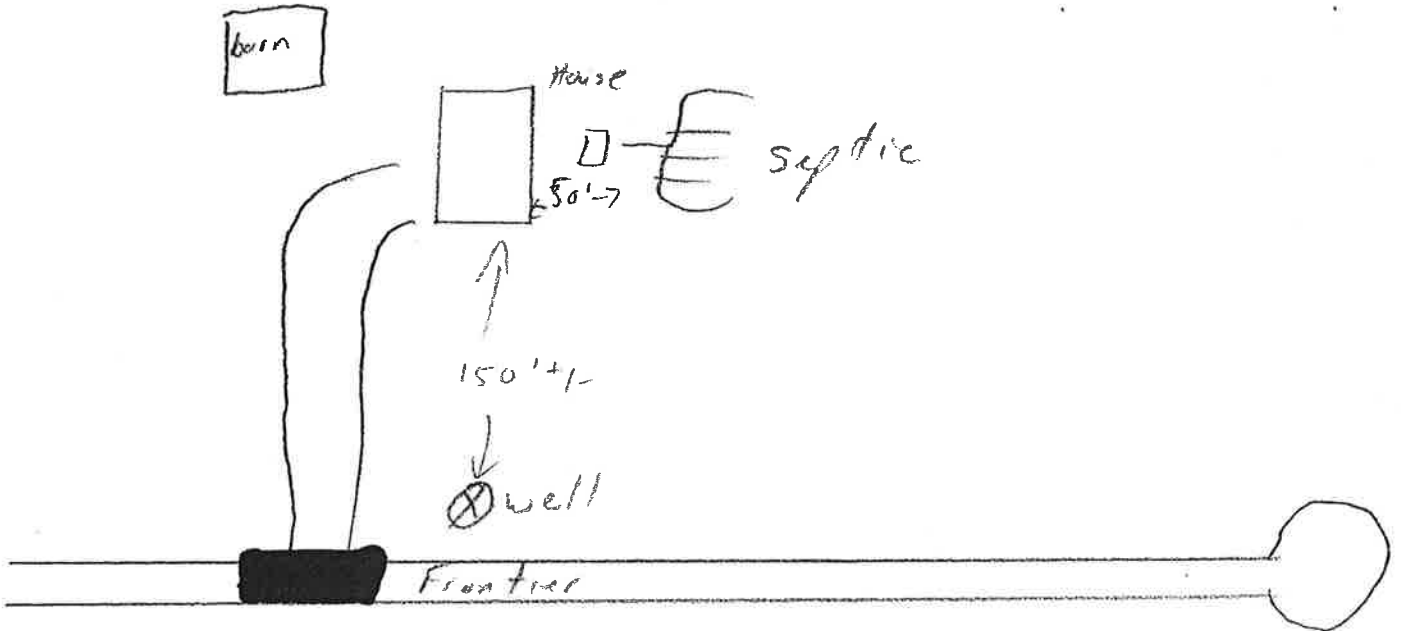 barn
House
septic
50'->
150'+/-
well
Frontier